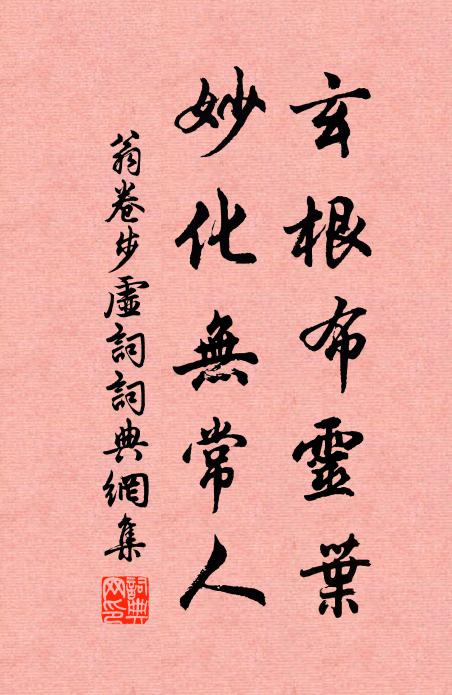 玄根布靈葉
妙化無常人
翁卷步虛詞詞典網集
詞典網印